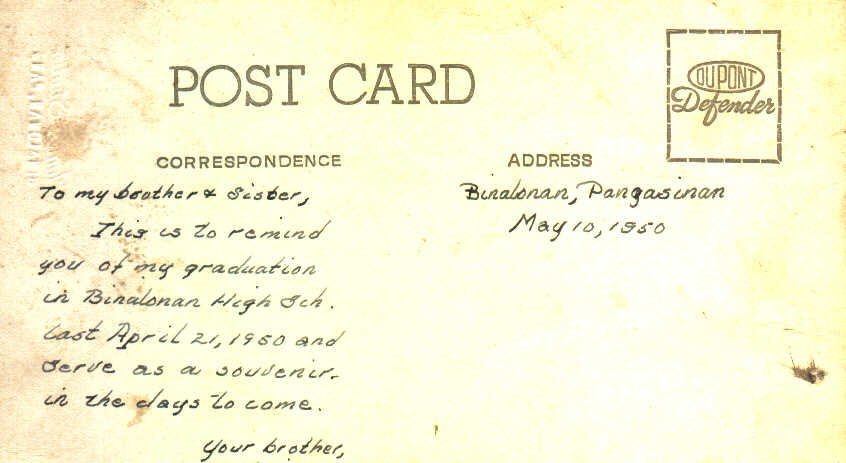 POST CARD
DUPONT
Defender
CORRESPONDENCE
To my brother & Sister,
This is to remind
you of my graduation
in Binalonan High Sch.
last April 21, 1950 and
serve as a souvenir
in the days to come.
Your brother,
ADDRESS
Binalonan, Pangasinan
May 10, 1950